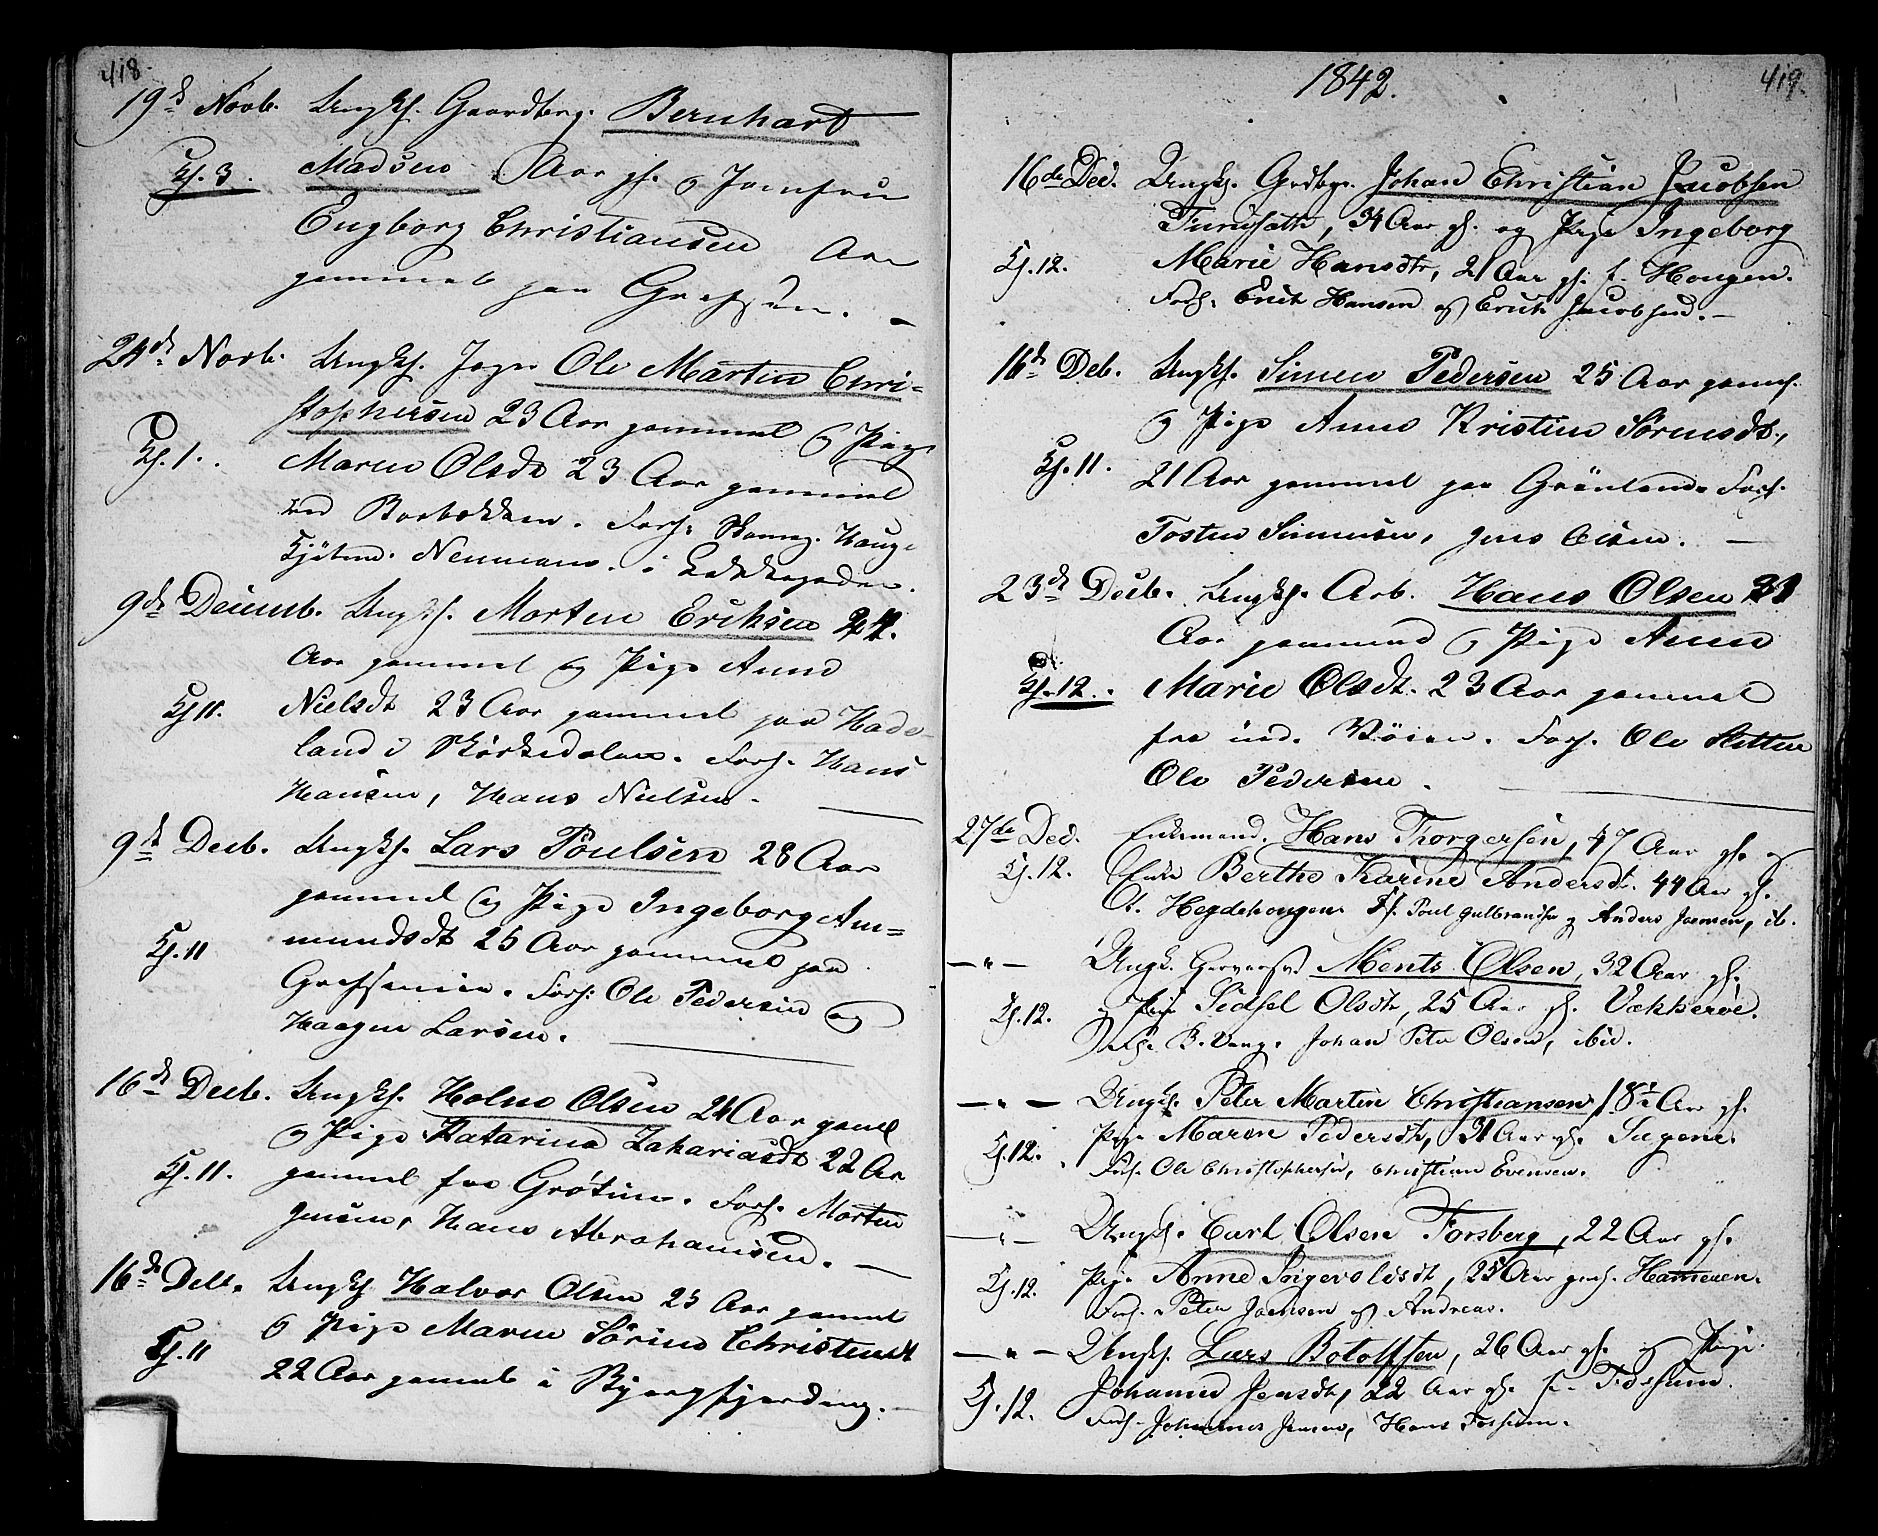 418.
19d Novb. Ungkf. Gaardbrg. Bernhart
Kj. 3. Madsen Aar gl. og Jomfru
Engborg Christiansen Aar
gammel paa Grefsen.
24d Novb. Ungkf. Ole Martin Chri-
stophersen 23 Aar gammel og Pige
Kj. 1. Maren Olsdt 23 Aar gammel
ved Bærbekken. Forl.
Neumann. i
9de Decemb. Ungkf. Morten Eriksen 24.
Aar gammel og Pige Anne
Kj 10. Nielsdt 23 Aar gammel paa Hade-
land i Sørkedalen. Forl. Hans
Hansen, Hans Nielsen.
9d Decb. Ungkf. Lars Poulsen 28 Aar
gammel og Pige Ingeborg Am-
Kj. 11 mundsdt 25 Aar gammel paa
Forl: Ole Pedersen og
Haagen Larsen.
16d Decb. Ungkf. Olsen 24 Aar gamel
og Pige Katarina Zakariasdt 22 Ar
Kj. 11. gammel fra Grøtum. Forl. Morten
Jensen, Hans Abrahamsen.
16d Decb. Ungkf Halvor Olsen 25 Aar gammel
og Pige Maren Sörine Christensdt
Kj. 11 22 Aar gammel i Bjergfjerding.
1842.
419.
16de Dec. Ungkf. Grdbgr. Johan Christian Jacobsen
34 Aar gl. og Pige Ingeborg
Kj. 12. Marie Hansdtr, 21 Aar gl. f. Hougen.
Forl. Erich Hansen og Erich Jacobsen.
16d Deb. Ungkf. Simen Pedersen 25 Aar gamel.
og Pige Anne Kristine Sörensdt.,
Kj. 11. 21 Aar gammel paa Grönland. Forl.
Tosten Simensen, Jens Olsen.
23d Decb. Ungkf. Arb. Hans Olsen 31
Aar gammel og Pige Anne
Kj. 12. Marie Olsdt. 23 Aar gammel
fra ned. Vöien. Forl. Ole
Ole Pedersen.
27de Dec. Enkemand. Hans Thorgersen, 47 Aar gl. og
Kj. 12. Enke Berthe Karine Andersdt. 44 Aar gl.
Heydehougen Fl. Poul Gulbrandsen og Anders Jaensen, ib.
— " — Ungk. Ments Olsen, 32 Aar gl.
Kj. 12. og Pige Sidsel Olsdt, 25 Aar gl. Vækkerøe.
Johan Peter Olsen, ibid.
— " — Ungkf. Peter Martin Christiansen, 18½ Aar gl.
Kj. 12. Pige Maren Pedersdt, 31 Aar gl. Sagene.
Forl. Ole Christophersen, Christian Evensen.
— " — Ungkf. Carl Olsen Forsberg, 22 Aar gl.
Kj. 12. Pige Anne Ingevoldsdt, 25 Aar gml.
Forl. Peter Jaensen og Andreas.
— " — Ungkf. Lars Botolfsen, 26 Aar gl. og Pige
Kj. 12. Johanne Jensdt, 22 Aar gl. f. Fossum.
Forl. Johannes Jensen, Hans Fossum.